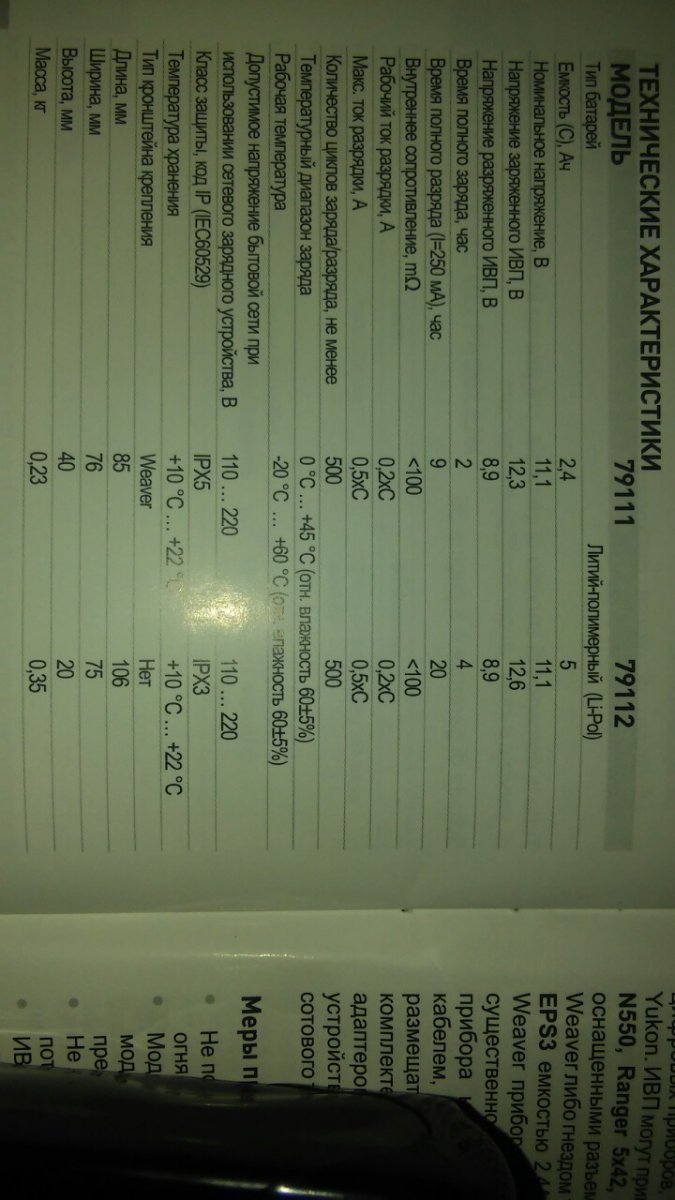 ТЕХНИЧЕСКИЕ ХАРАКТЕРИСТИКИ
МОДЕЛЬ 79111 79112
Тип батарей Литий-полимерный (Li-Pol)
Емкость (С), Ач 2,4 5
Номинальное напряжение, В 11,1 11,1
Напряжение заряженного ИВП, В 12,3 12,6
Напряжение разряженного ИВП, В 8,9 8,9
Время полного заряда, час 2 4
Время полного разряда (I=250 мА), час 9 20
Внутреннее сопротивление, mΩ <100 <100
Рабочий ток разрядки, А 0,2xC 0,2xC
Макс. ток разрядки, А 0,5xC 0,5xC
Количество циклов заряда/разряда, не менее 500 500
Температурный диапазон заряда 0 °C ... +45 °C (отн. влажность 60±5%)
Рабочая температура -20 °C ... +60 °C (отн. влажность 60±5%)
Допустимое напряжение бытовой сети при
использовании сетевого зарядного устройства, В 110 ... 220 110 ... 220
Класс защиты, код IP (IEC60529) IPX5 IPX3
Температура хранения +10 °C ... +22 °C +10 °C ... +22 °C
Тип кронштейна крепления Weaver Нет
Длина, мм 85 106
Ширина, мм 76 75
Высота, мм 40 20
Масса, кг 0,23 0,35
Yukon. ИВП могут
N550, Ranger 5x42,
оснащенными
Weaver либо гнездом
EPS3 емкостью
Weaver
существенно
прибора
кабелем,
сотового
Меры
• Не
огня
•
• Не
•